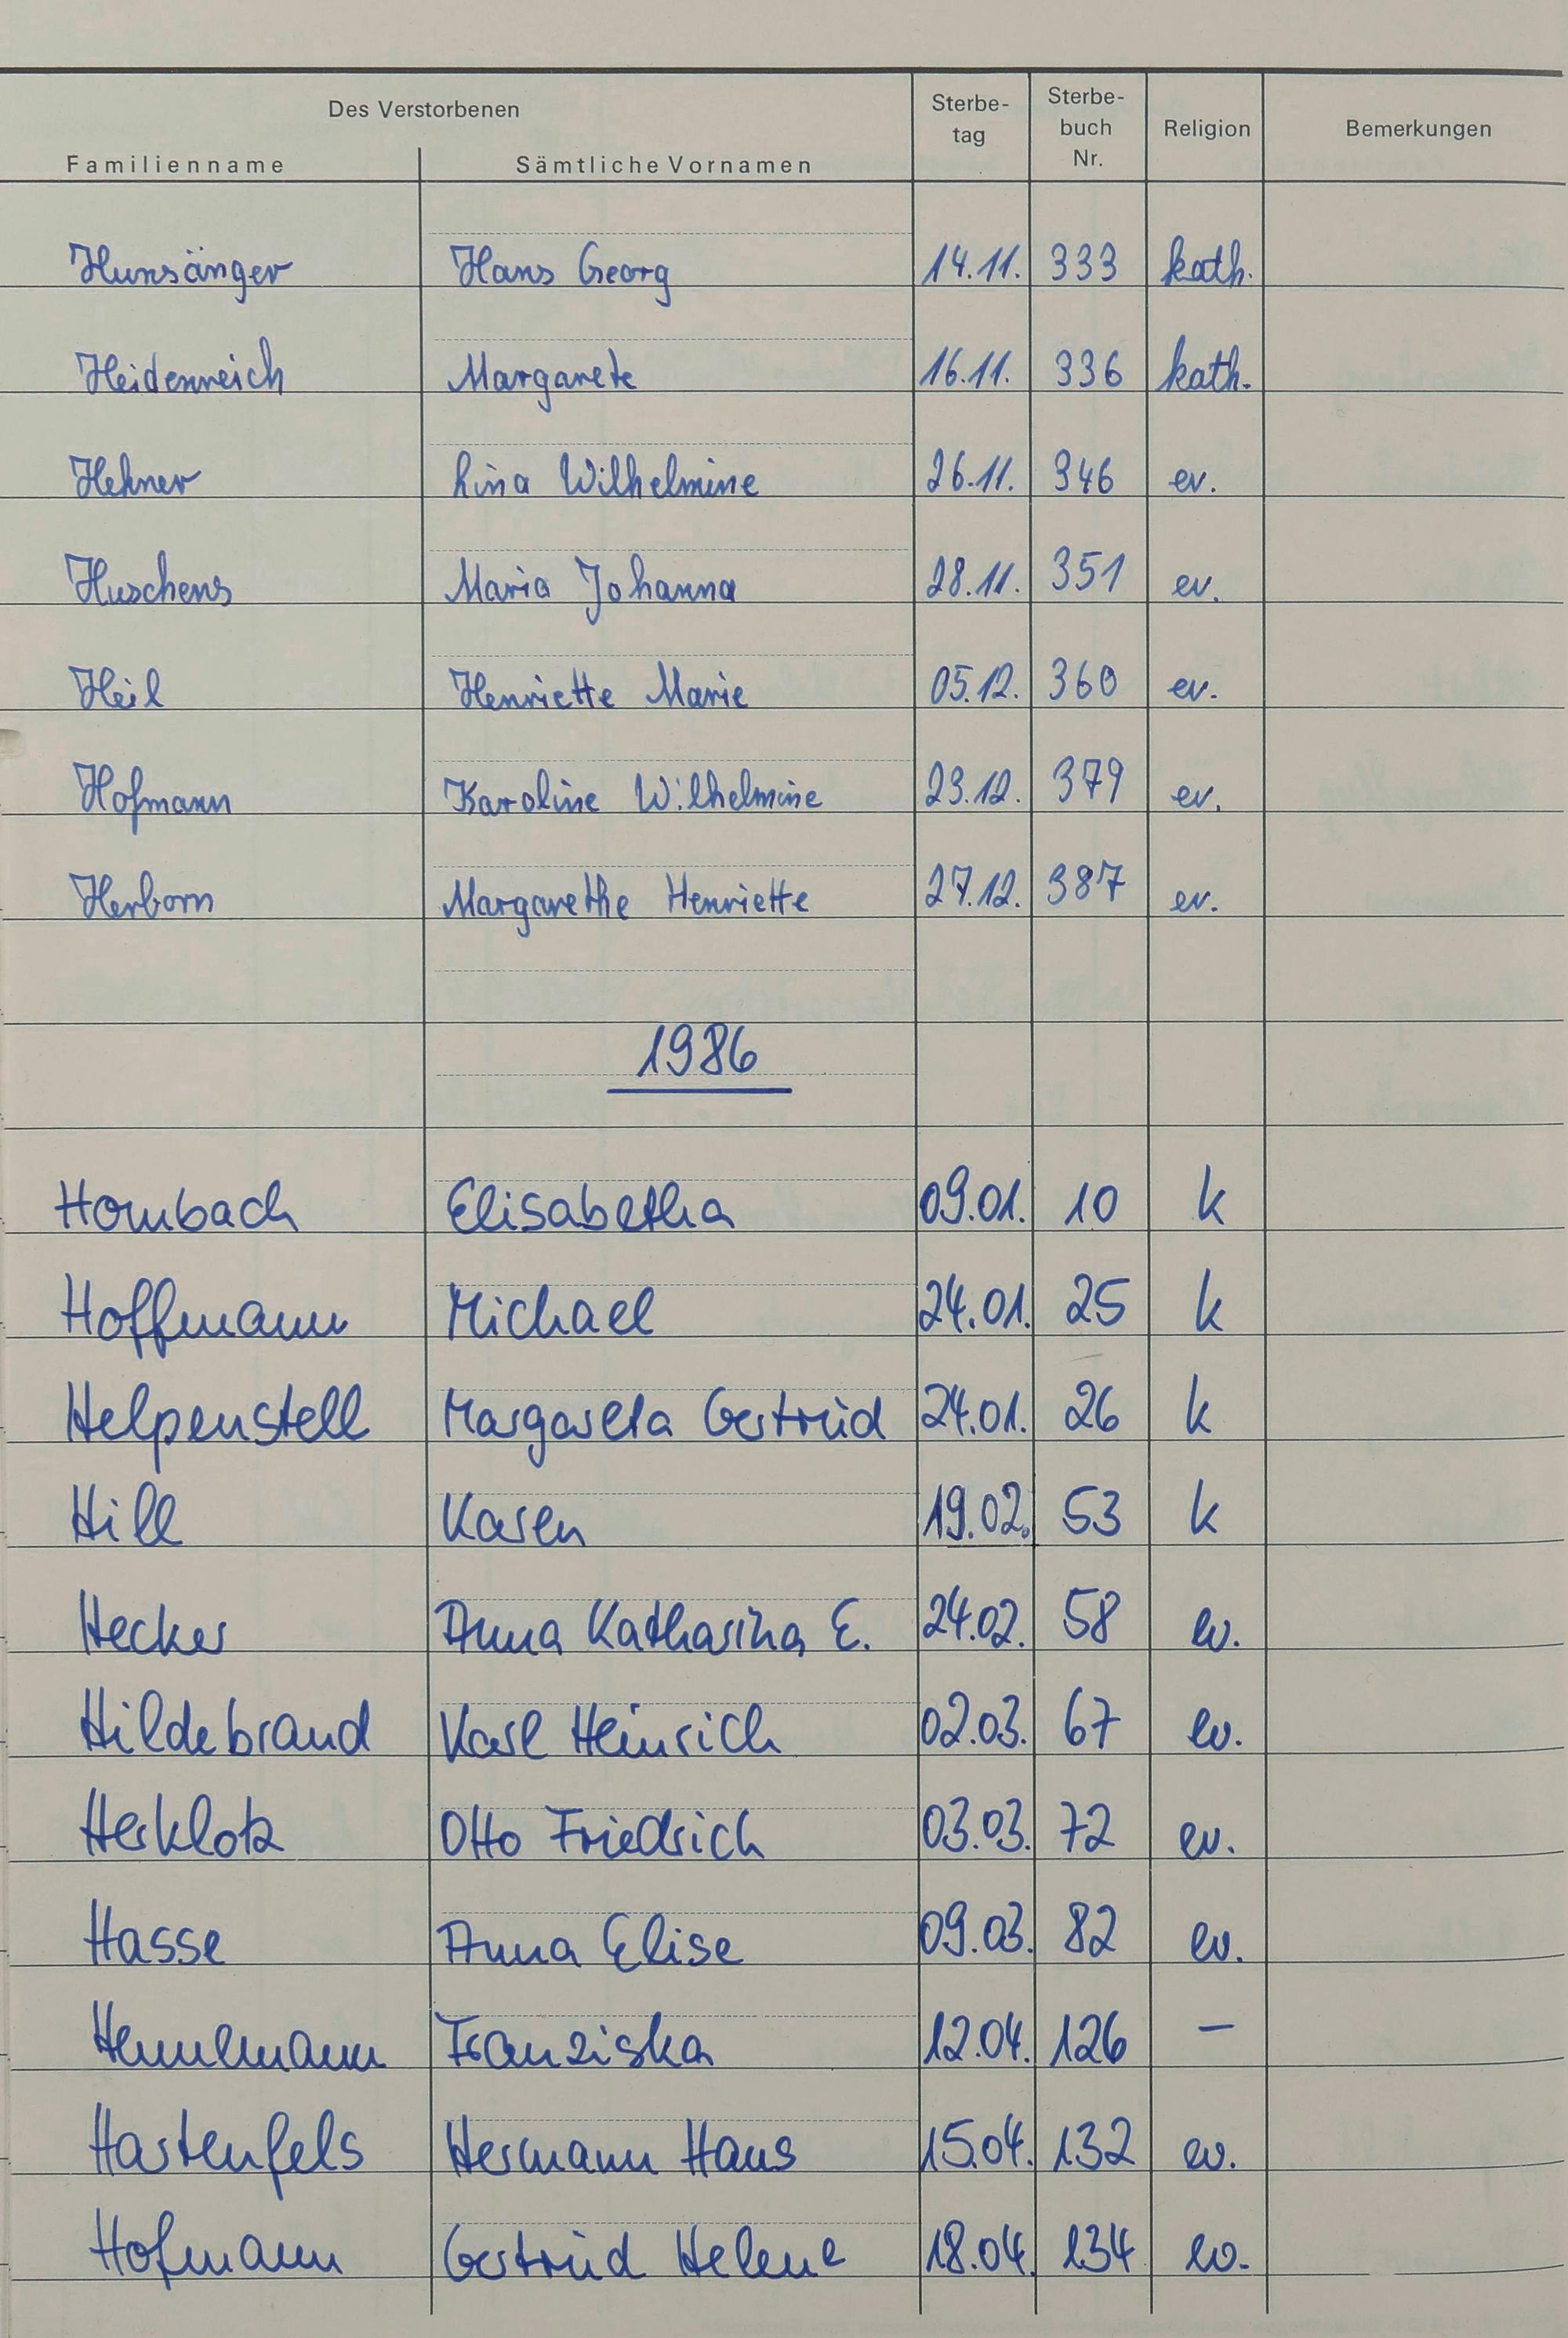 Des Verstorbenen
Familienname Sämtliche Vornamen Sterbe-tag Sterbe-buch Nr. Religion Bemerkungen
Hunsänger Hans Georg 14.11. 333 kath.
Heidenreich Margarete 16.11. 336 kath.
Hehner Lina Wilhelmine 26.11. 346 ev.
Huschens Maria Johanna 28.11. 351 ev.
Heil Henriette Marie 05.12. 360 ev.
Hofmann Karoline Wilhelmine 23.12. 379 ev.
Herborn Margarethe Henriette 27.12. 387 ev.
1986
Hombach Elisabetha 09.01. 10 k
Hoffmann Michael 24.01. 25 k
Helpenstell Margareta Gertrud 24.01. 26 k
Hill Karen 19.02. 53 k
Hecker Anna Katharina E. 24.02. 58 ev.
Hildebrand Karl Heinrich 02.03. 67 ev.
Herklotz Otto Friedrich 03.03. 72 ev.
Hasse Anna Elise 09.03. 82 ev.
Franziska 12.04. 126 –
Hartenfels Hermann Hans 15.04. 132 ev.
Hofmann Gertrud Helene 18.04. 134 ev.